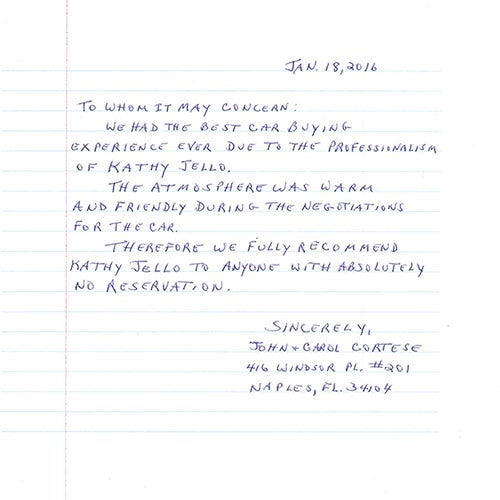 JAN. 18, 2016
TO WHOM IT MAY CONCERN:
WE HAD THE BEST CAR BUYING
EXPERIENCE EVER DUE TO THE PROFESSIONALISM
OF KATHY JELLO.
THE ATMOSPHERE WAS WARM
AND FRIENDLY DURING THE NEGOTIATIONS
FOR THE CAR.
THEREFORE WE FULLY RECOMMEND
KATHY JELLO TO ANYONE WITH ABSOLUTELY
NO RESERVATION.
SINCERELY,
JOHN + CAROL CORTESE
416 WINDSOR PL. #201
NAPLES, FL. 34104